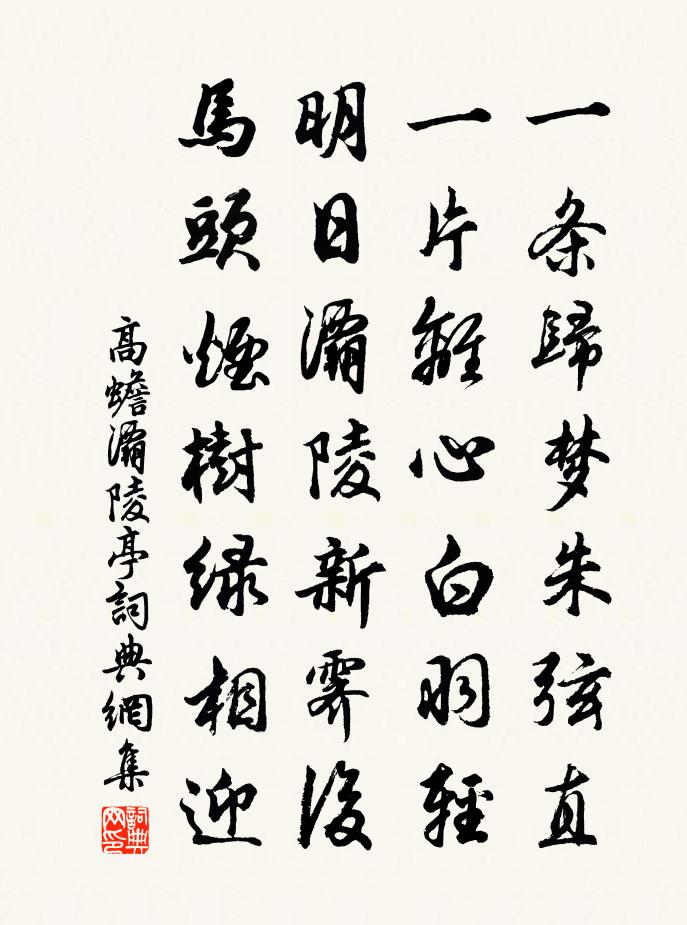 一条歸梦朱弦直
一片離心白羽輕
明日灞陵新霽後
馬頭煙樹綠相迎
高蟾灞陵亭詞典網集
詞典
网印